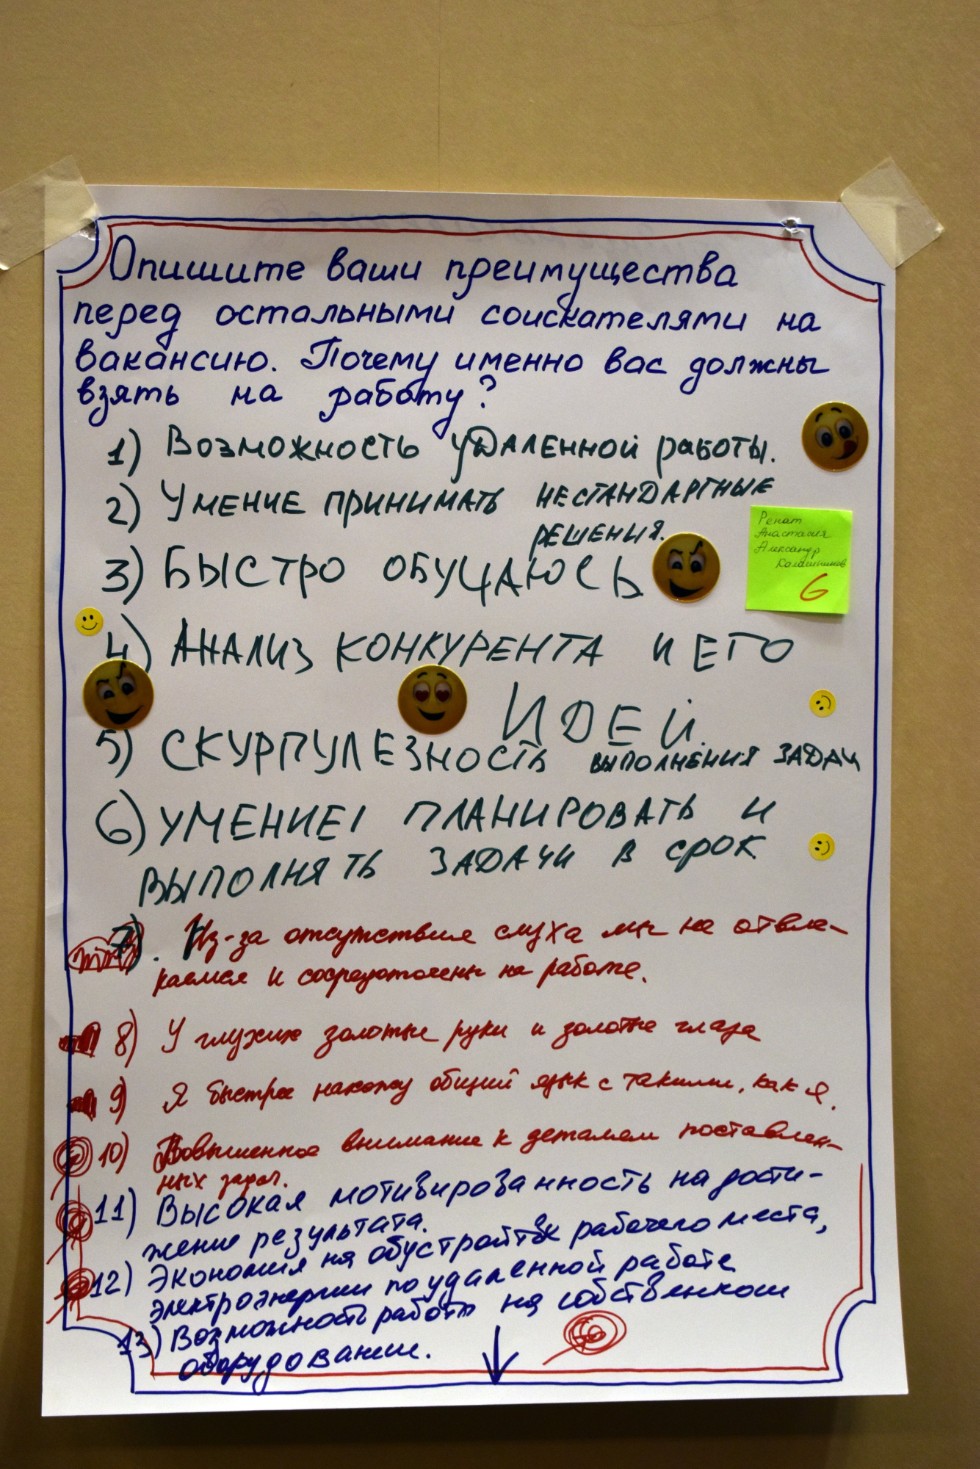 Опишите ваши преимущества
перед остальными соискателями на
вакансию. Почему именно вас должны
взять на работу?
1) Возможность удаленной работы.
2) Умение принимать нестандартные
решения.
3) Быстро обучаюсь
Ренат
Анастасия
Александр
6
4) Анализ конкурента и его
идей.
5) Скурпулезность выполнения задач
6) Умение планировать и
выполнять задачи в срок
7). Из-за отсутствия слуха мы не отвле-
каемся и сосредоточены на работе.
8) У глухих золотые руки и золотые глаза
9) Я быстрее нахожу общий язык с такими, как я.
10) Повышенное внимание к деталям поставлен-
ных задач.
11) Высокая мотивированность на дости-
жение результата.
12) Экономия на обустройстве рабочего места,
электроэнергии по удаленной работе
13) Возможность работы на собственном
оборудовании.